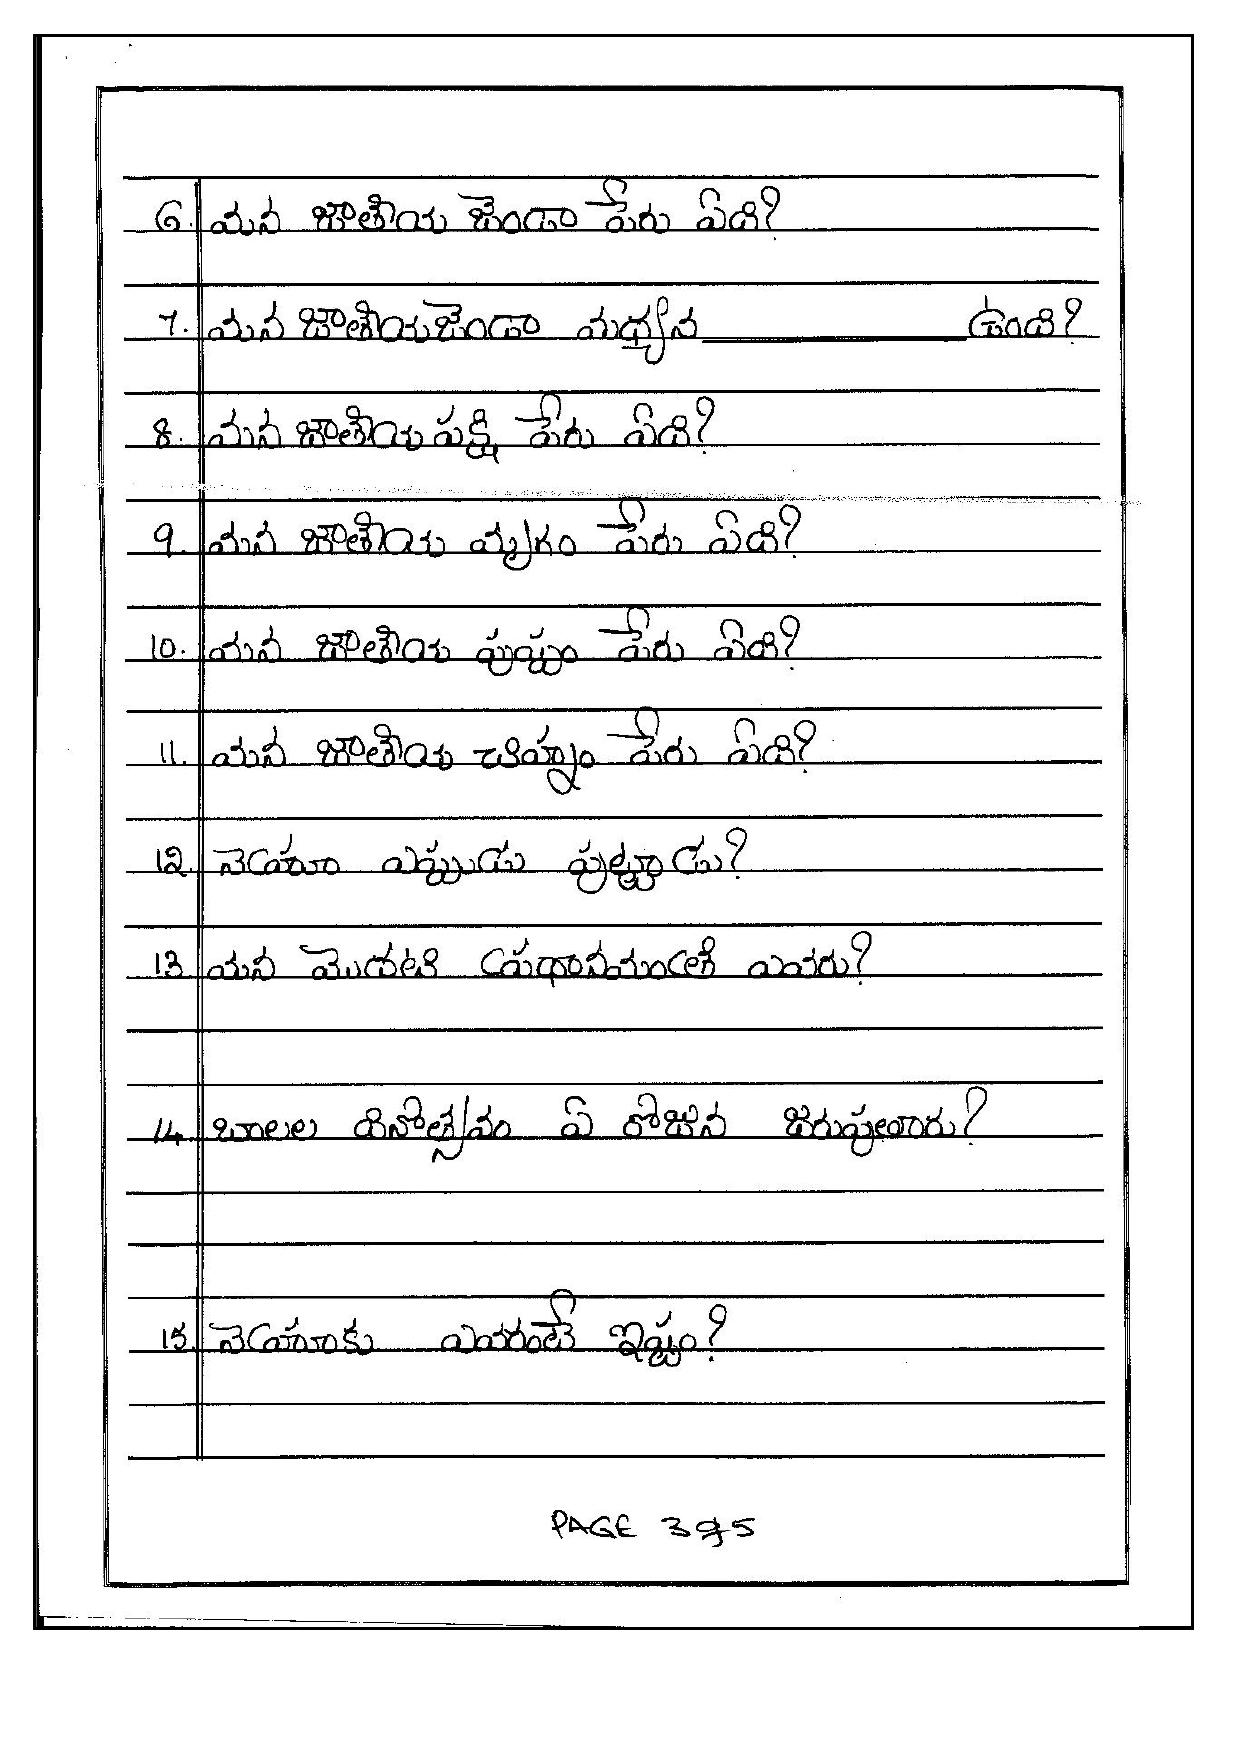 6. మన జాతీయ జెండా పేరు ఏది?
7. మన జాతీయజెండా మధ్యన ____________ ఉంది?
8. మన జాతీయ పక్షి పేరు ఏది?
9. మన జాతీయ మృగం పేరు ఏది?
10. మన జాతీయ పుష్పం పేరు ఏది?
11. మన జాతీయ చిహ్నం పేరు ఏది?
12. నెహ్రూ ఎప్పుడు పుట్టాడు?
13. మన మొదటి ప్రధానమంత్రి ఎవరు?
14. బాలల దినోత్సవం ఏ రోజున జరుపుతారు?
15. నెహ్రూకు ఎవరంటే ఇష్టం?
PAGE 3 of 5